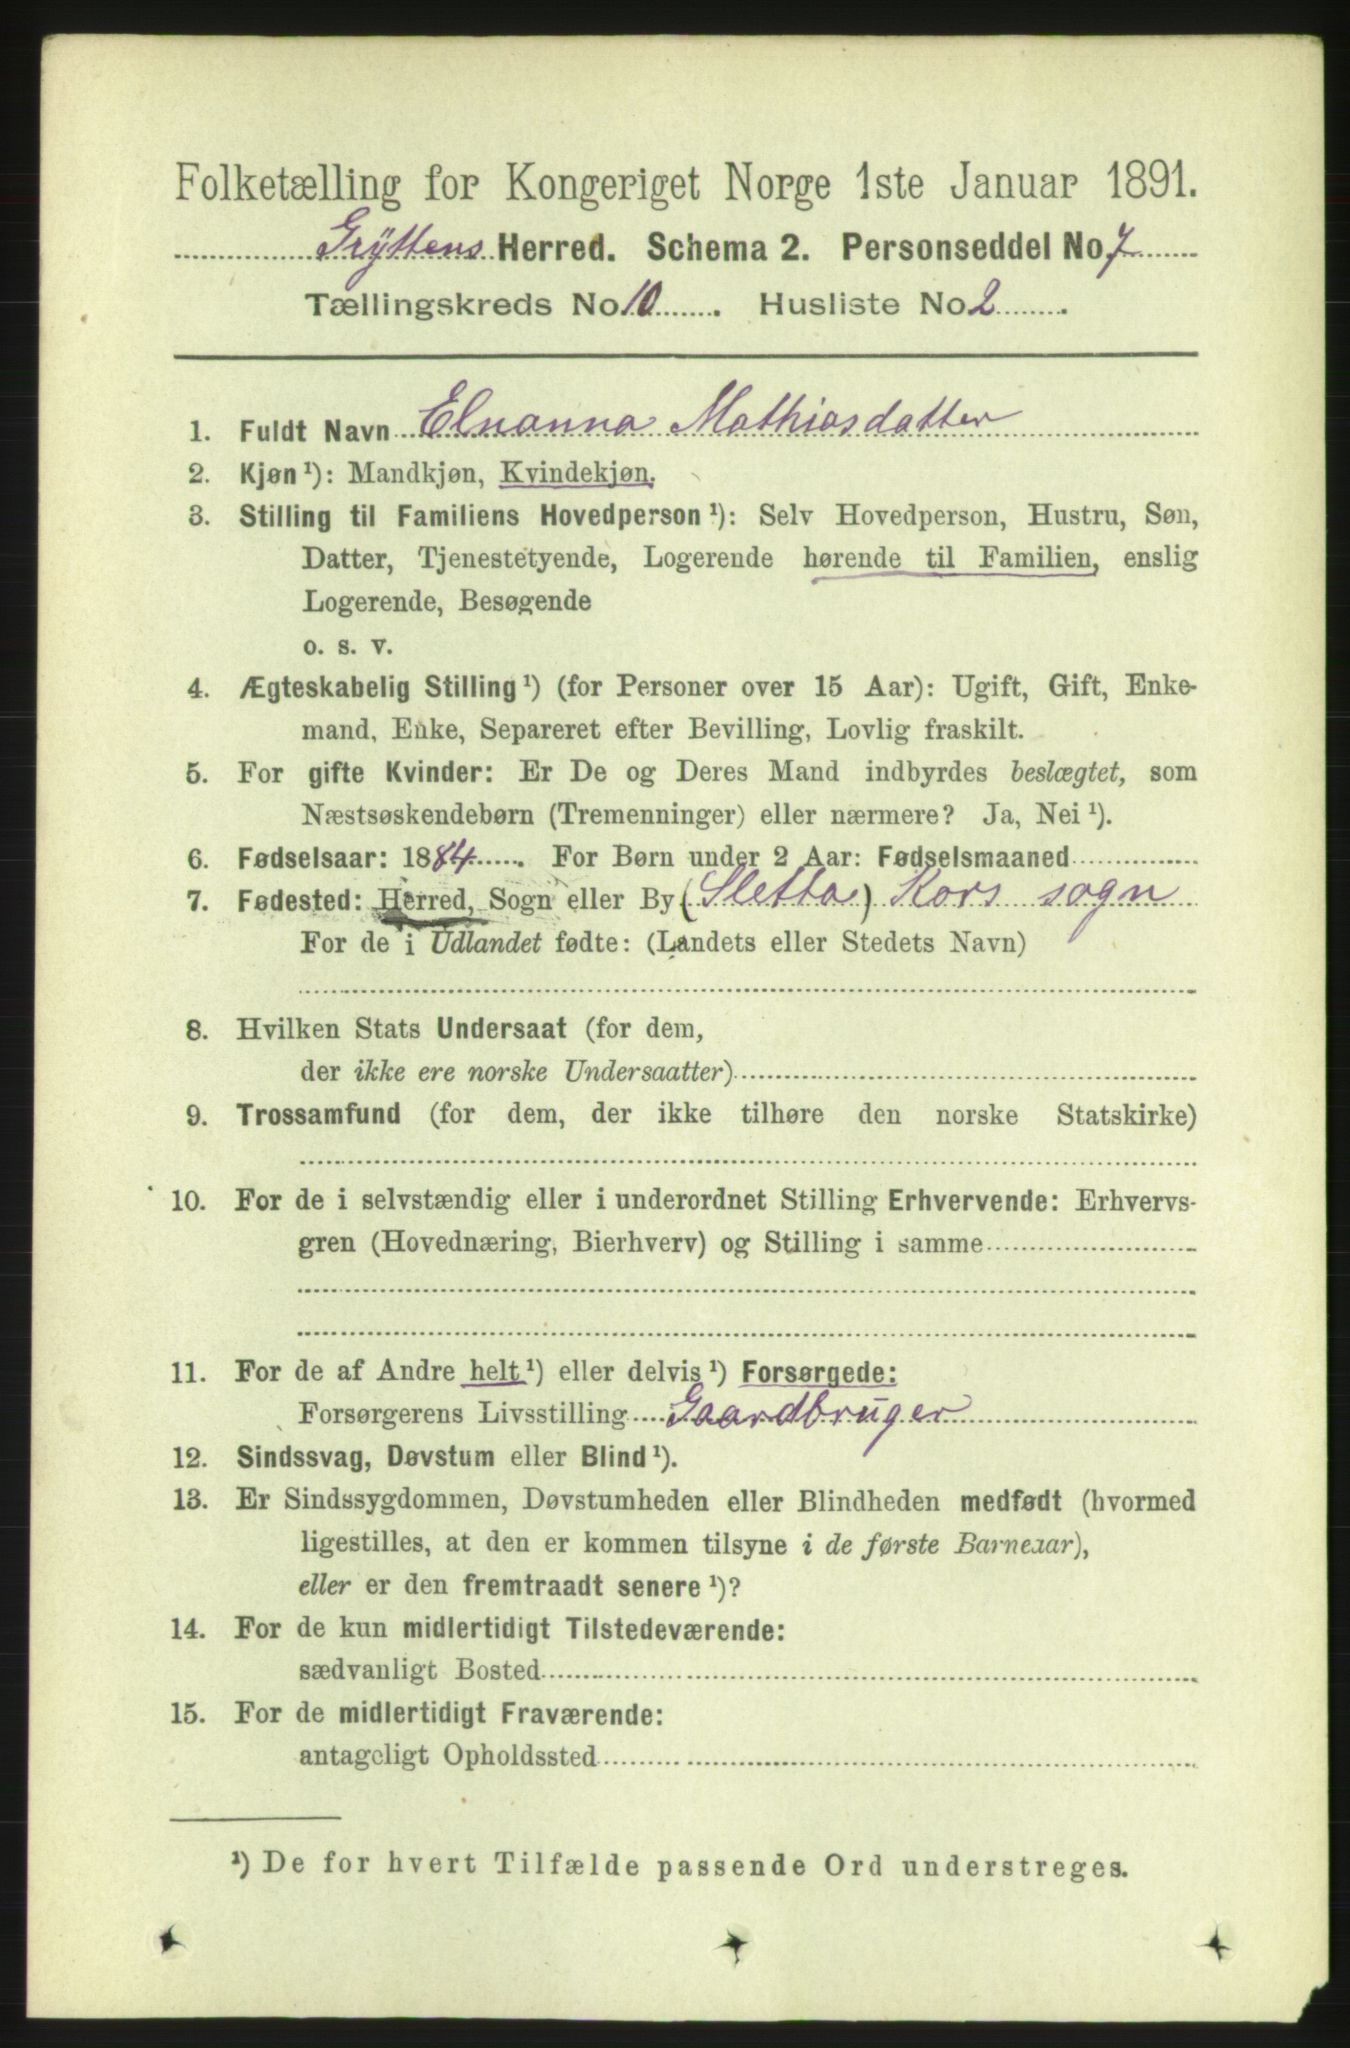 Folketælling for Kongeriget Norge 1ste Januar 1891.
Gryttens Herred. Schema 2. Personseddel No. 7
Tællingskreds No. 10. Husliste No. 2.
1. Fuldt Navn Elnanna Mathiasdatter
2. Kjøn¹): Mandkjøn, Kvindekjøn.
3. Stilling til Familiens Hovedperson¹): Selv Hovedperson, Hustru, Søn,
Datter, Tjenestetyende, Logerende hørende til Familien, enslig
Logerende, Besøgende
o. s. v.
4. Ægteskabelig Stilling¹) (for Personer over 15 Aar): Ugift, Gift, Enke-
mand, Enke, Separeret efter Bevilling, Lovlig fraskilt.
5. For gifte Kvinder: Er De og Deres Mand indbyrdes beslægtet, som
Næstsøskendebørn (Tremenninger) eller nærmere? Ja, Nei¹).
6. Fødselsaar: 1884. For Børn under 2 Aar: Fødselsmaaned
7. Fødested: Herred, Sogn eller By (Sletta) Kors sogn
For de i Udlandet fødte: (Landets eller Stedets Navn)
8. Hvilken Stats Undersaat (for dem,
der ikke ere norske Undersaatter)
9. Trossamfund (for dem, der ikke tilhøre den norske Statskirke)
10. For de i selvstændig eller i underordnet Stilling Erhvervende: Erhvervs-
gren (Hovednæring, Bierhverv) og Stilling i samme
11. For de af Andre helt¹) eller delvis¹) Forsørgede:
Forsørgerens Livsstilling Gaardbruger
12. Sindssvag, Døvstum eller Blind¹).
13. Er Sindssygdommen, Døvstumheden eller Blindheden medfødt (hvormed
ligestilles, at den er kommen tilsyne i de første Barneaar),
eller er den fremtraadt senere¹)?
14. For de kun midlertidigt Tilstedeværende:
sædvanligt Bosted
15. For de midlertidigt Fraværende:
antageligt Opholdssted
¹) De for hvert Tilfælde passende Ord understreges.